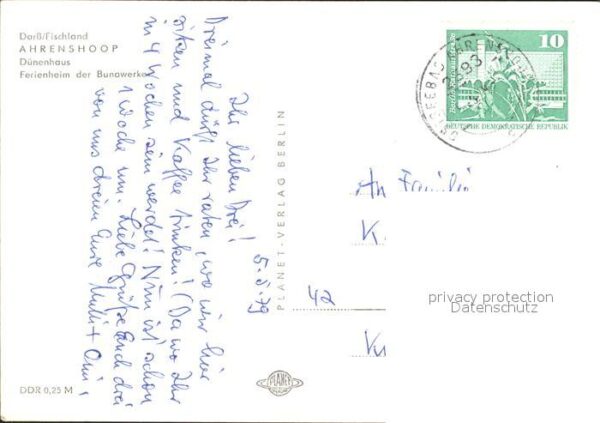 Darß/Fischland
AHRENSHOOP
Dünenhaus
Ferienheim der Bunawerke
5.5.79
Ihr lieben Drei!
Dreimal dürft Ihr raten, wo wir hier
sitzen und Kaffee trinken! (Da wo Ihr
in 4 Wochen sein werdet! Nun ist schon
1 Woche um. Liebe Grüße Euch drei
von uns dreien Eure +
DDR 0,25 M
PLANET-VERLAG BERLIN
PLANET
10
DEUTSCHE DEMOKRATISCHE REPUBLIK
An Familie
K
42
privacy protection
Datenschutz